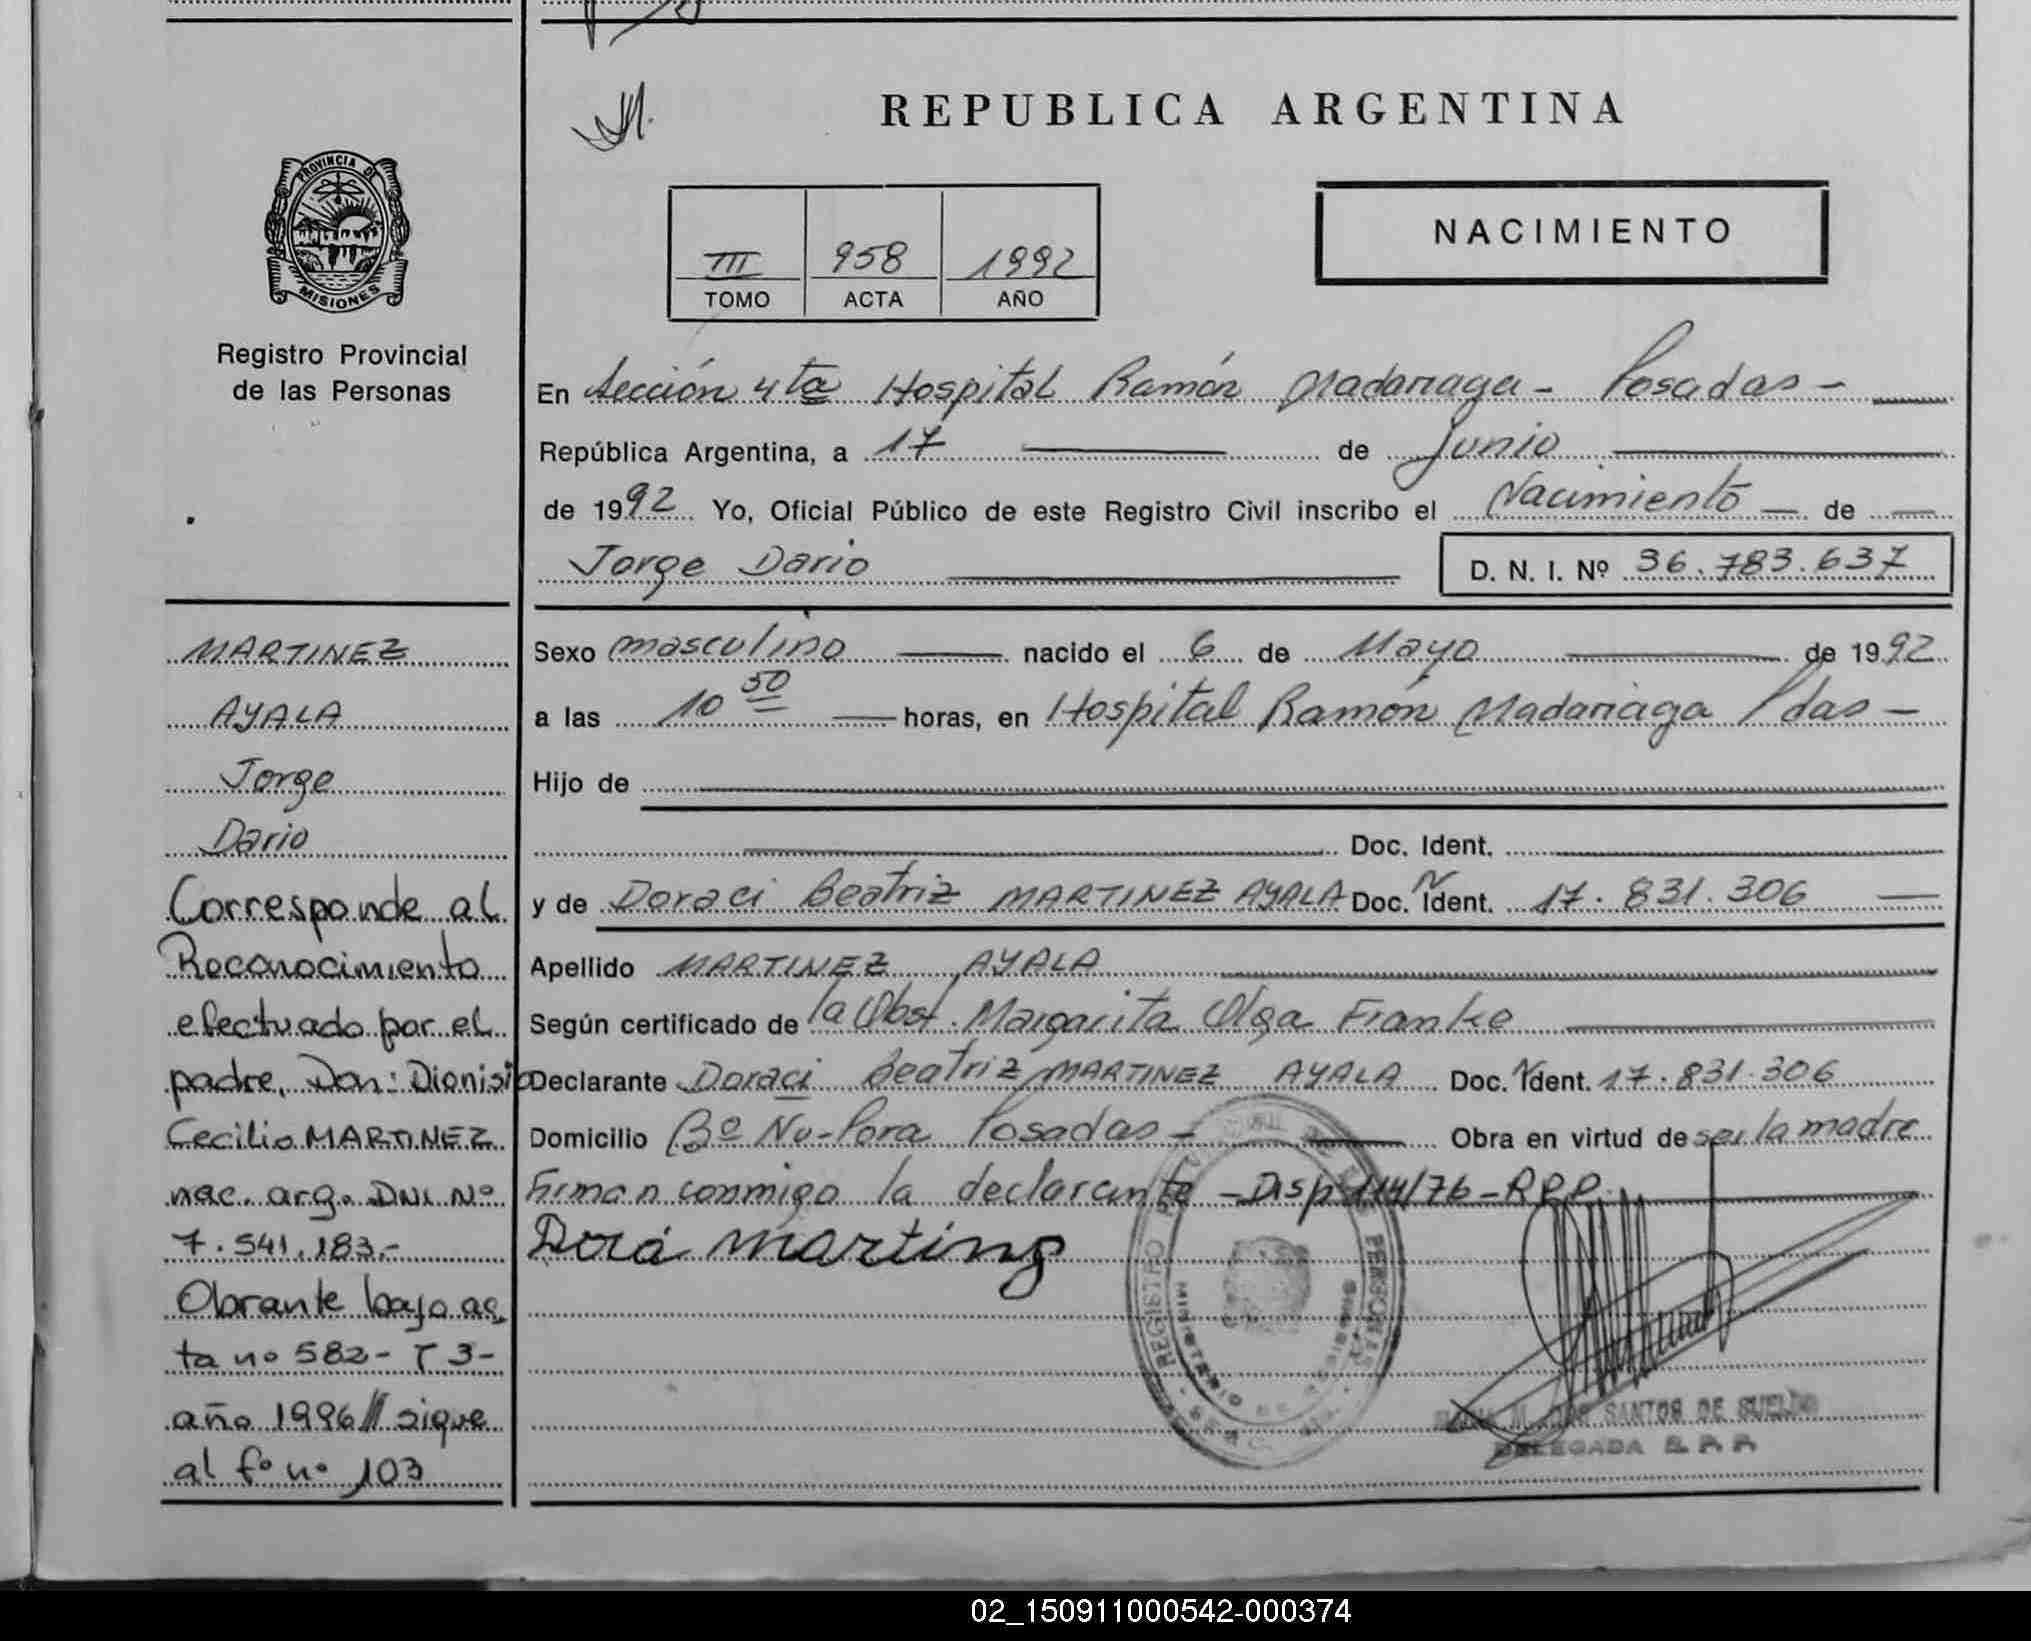 REPUBLICA ARGENTINA
PROVINCIA DE
MISIONES
Registro Provincial
de las Personas
III 958 1992
TOMO ACTA AÑO
NACIMIENTO
En Sección 4ta Hospital Ramón Madariaga - Posadas -
República Argentina, a 17 de Junio
de 1992 Yo, Oficial Público de este Registro Civil inscribo el Nacimiento de
Jorge Dario D. N. I. Nº 36.783.637
Sexo masculino nacido el 6 de Mayo de 1992
a las 10 50 horas, en Hospital Ramón Madariaga Pdas -
Hijo de
Doc. Ident.
y de Doraci Beatriz MARTINEZ AYALA Doc. Ident. 17.831.306
Apellido MARTINEZ AYALA
Según certificado de la Obst. Margarita Olga Franke
Declarante Doraci Beatriz MARTINEZ AYALA Doc. Ident. 17.831.306
Domicilio Bº Ñu-Pora Posadas - Obra en virtud de ser la madre
Firman conmigo la declarante - Disp 114/76 - RPP.
Dora martinz
MARTINEZ
AYALA
Jorge
Dario
Corresponde al
Reconocimiento
efectuado por el
padre, Don: Dionisio
Cecilio MARTINEZ
nac. arg. DNI Nº
7.541.183.-
Obrante bajo ac
ta nº 582- T 3-
año 1996 // sigue
al fº nº 103
REGISTRO PERSONAS
MINISTERIO DE
SANTOS DE SUELDO
DELEGADA R. P. P.
02_150911000542-000374